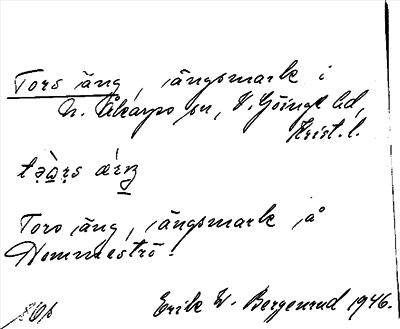 Tors äng, ängsmark i
N. Åkarps sn, V. Göinge hd,
Krist. l.
Tors äng, ängsmark på
Hommeströ.
Erik W. Bergenrud 1946.